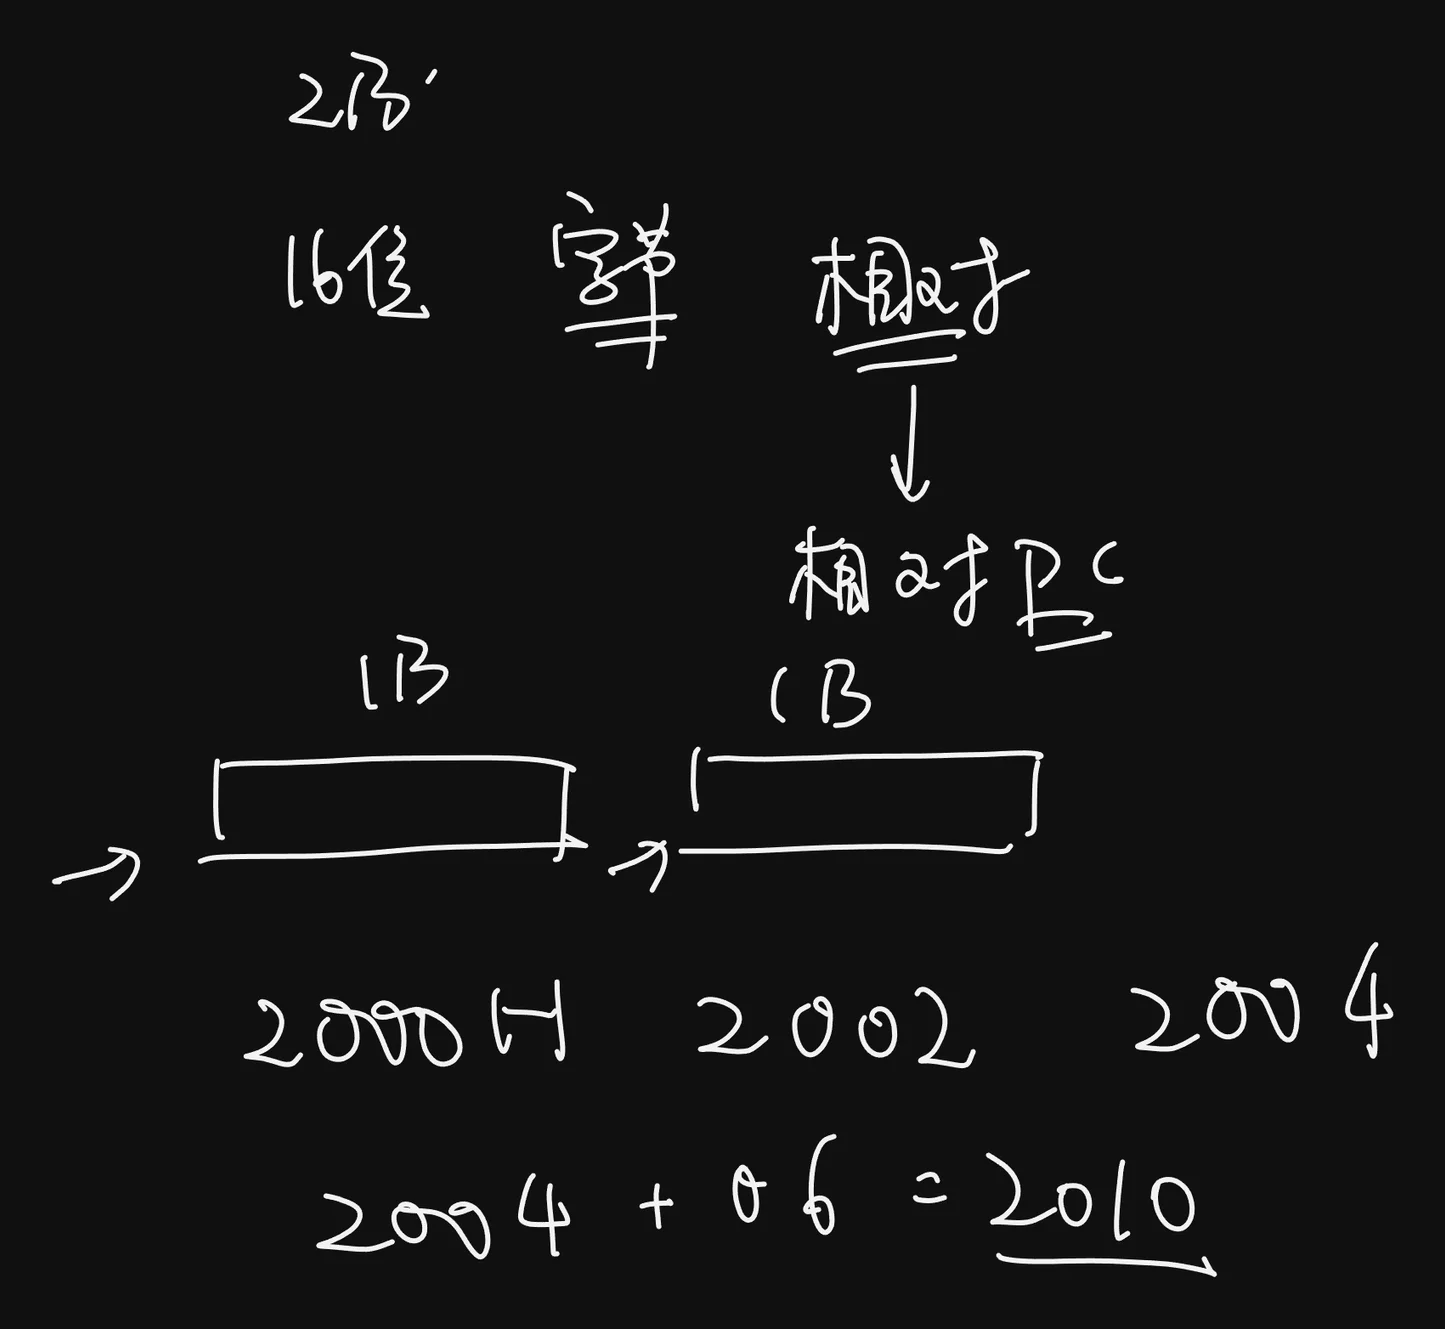 2B
16位 字节 相对
相对PC
1B 1B
2000H 2002 2004
2004 + 06 = 2010